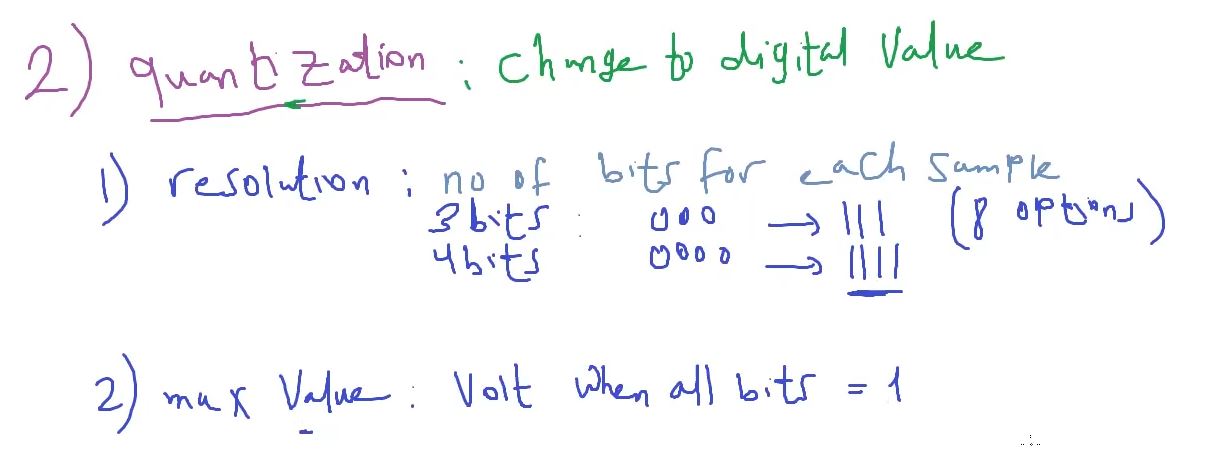 2) quantization : change to digital Value
1) resolution : no of bits for each sample
3 bits : 000 → 111 (8 options)
4 bits 0000 → 1111
2) max Value : Volt when all bits = 1